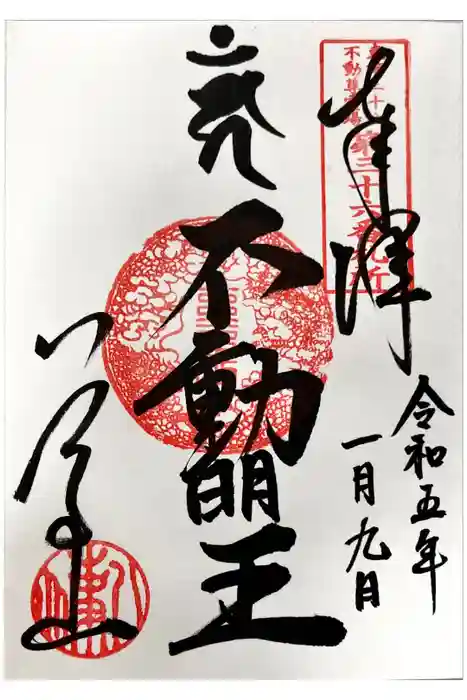 奉拝
不動尊霊場
第三十六番札所
令和五年
一月九日
不動明王